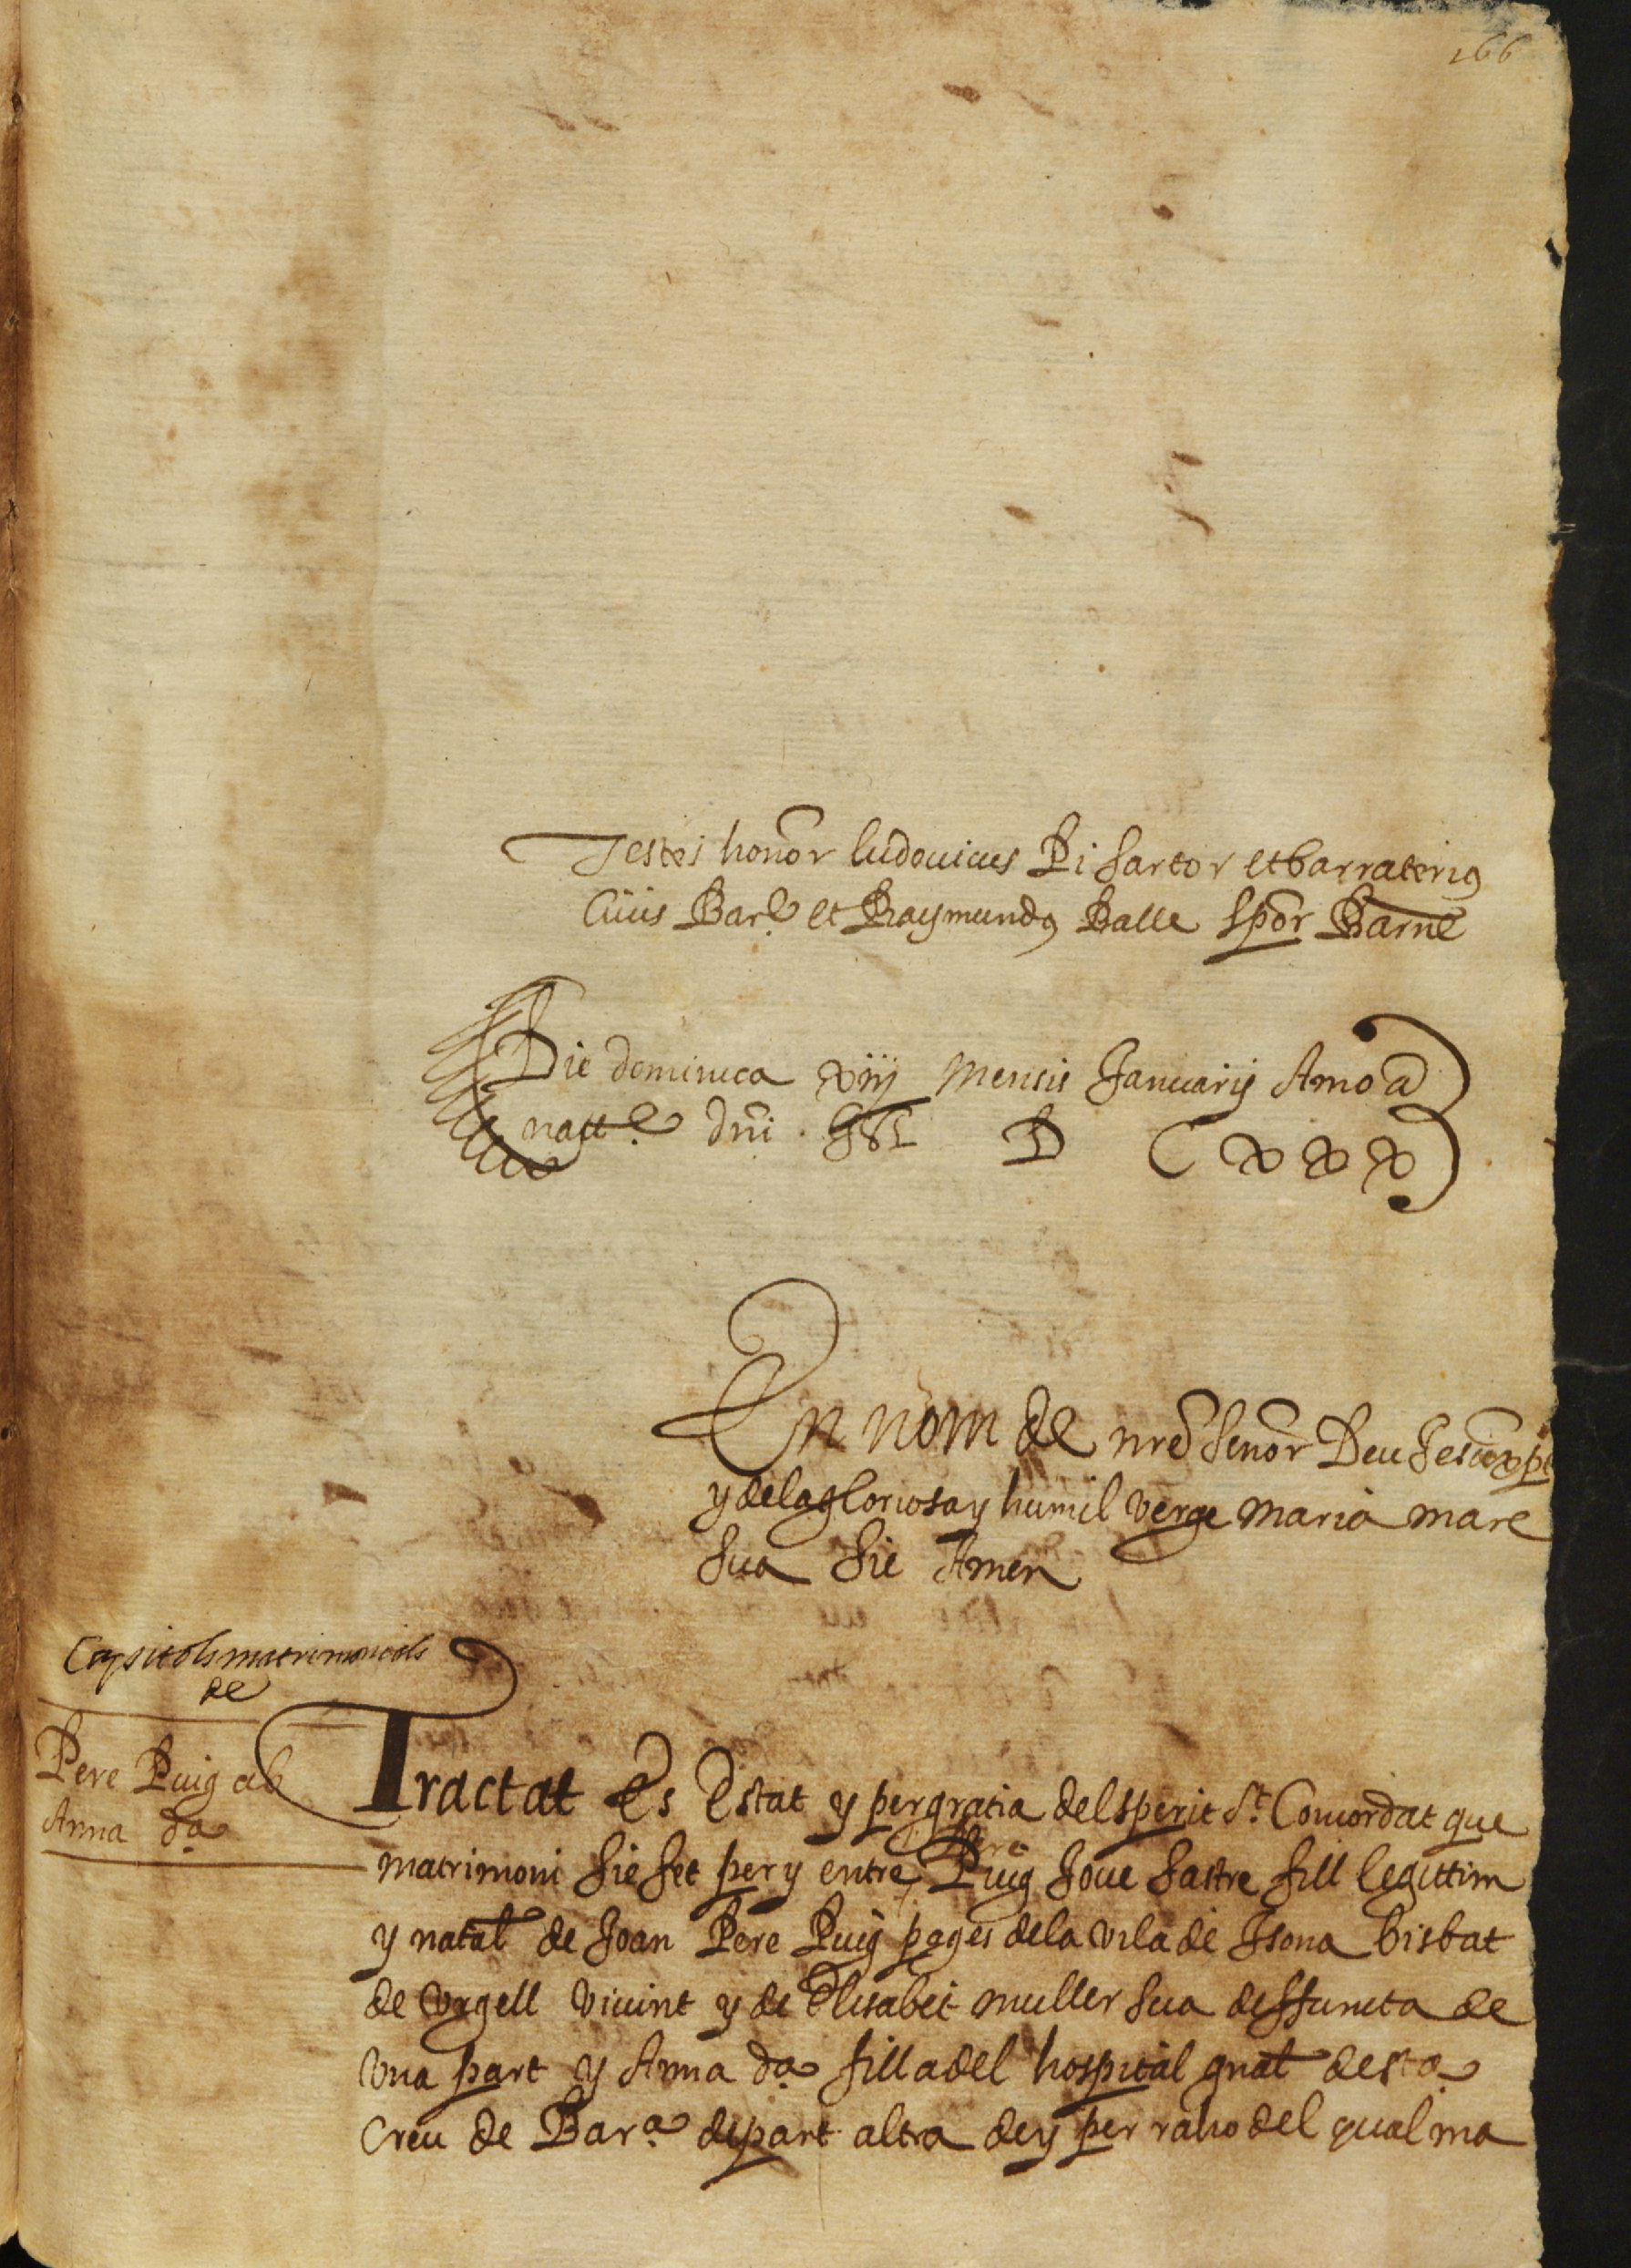 166
Testes honor ludovicus Pi sartor et barraterius
Civis Bar.e et Raymundus Balle sptor Barne
Die dominica xiij Mensis Januarij Anno a
natte dni D C xxx
En nom de nre Senor Deu Jesu xpt
y dela gloriosa y humil verge maria mare
Sua Sie Amen
Capitols matrimonials
de
Pere Puig ab
Anna da
Tractat Es Estat y per gratia del sperit St. Concordat que
Pere
matrimoni Sie fet per y entre Puig Jove Sastre fill legittim
y natal de Joan Pere Puig pages dela vila de Isona bisbat
de Vrgell vivint y de Elisabet muller Sua deffuncta de
vna part y Anna da filla del hospital gnal de sta
Creu de Bar.a de part altra de y per raho del qual ma